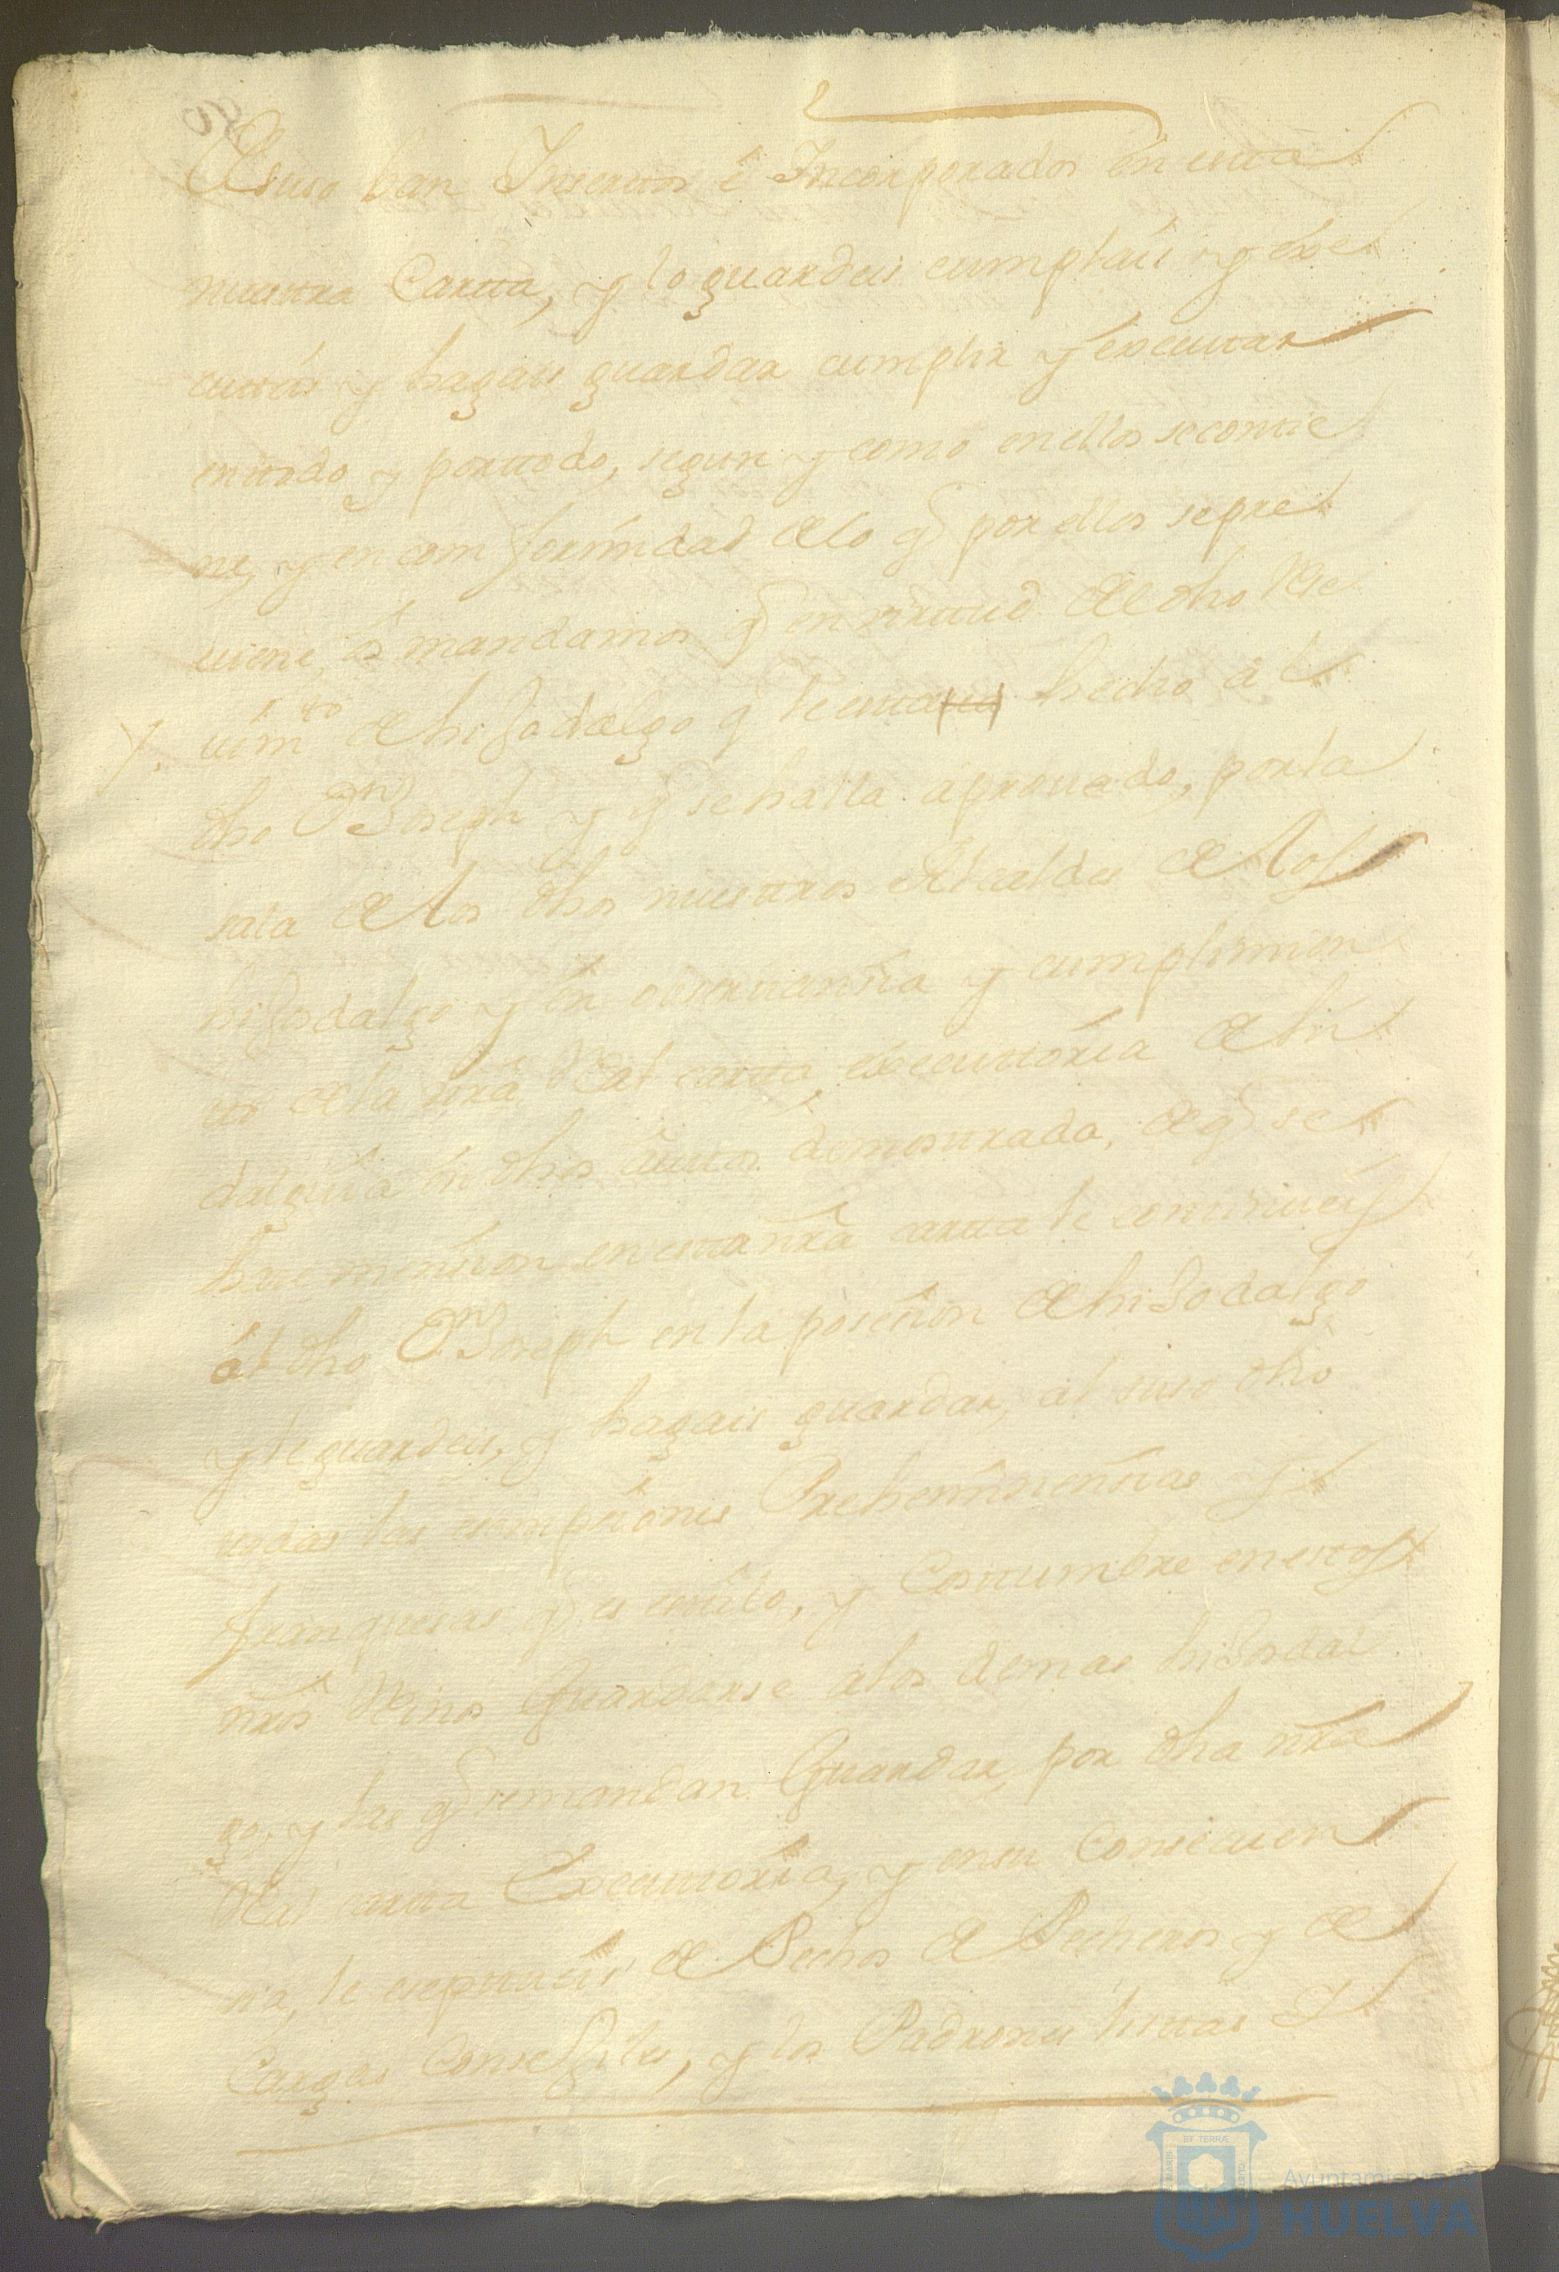 Desuso ban Insertos è Incorporados èn esta
nuestra Carta, y lo guardeis cumplais y èxe
cuteis y hagais guardar cumplir y èxecutar
entodo y portodo, segun y como enellos secontie
ne, y en comformidad delo q̃ por ellos sepre
viene, òs mandamos q̃ en virtud del dho Rse
uim.to de hijodalgo q̃ le esta hecho àl
dho Dn Joseph y q̃ se halla àprouado, porla
sala de los dhos nuestros Alcaldes de los
hijosdalgo y èn obseruancia y cumplimien
to dela nrã Real carta èxecutoria de hi
dalguia èn dhos àutos demostrada, de q̃ se
hace mencion en esta nrã carta le continueis
àl dho Dn Joseph en la posecion de hijodalgo
y le guardeis, y hagais guardar, al suso dho
todas las esempciones Preheminencias y
franquesas q̃ es estilo, y Costumbre enestos
nrõs Reinos Guardarse alos demas hijosdal
go, y las q̃ semandan Guardar, por dha nrã
Real carta Executoria, y ensu Consecuen
cia, le exeptueis de Pechos de Pecheros y de
Cargas Consejiles, y los Padrones listas I
Ayuntamiento de
HUELVA